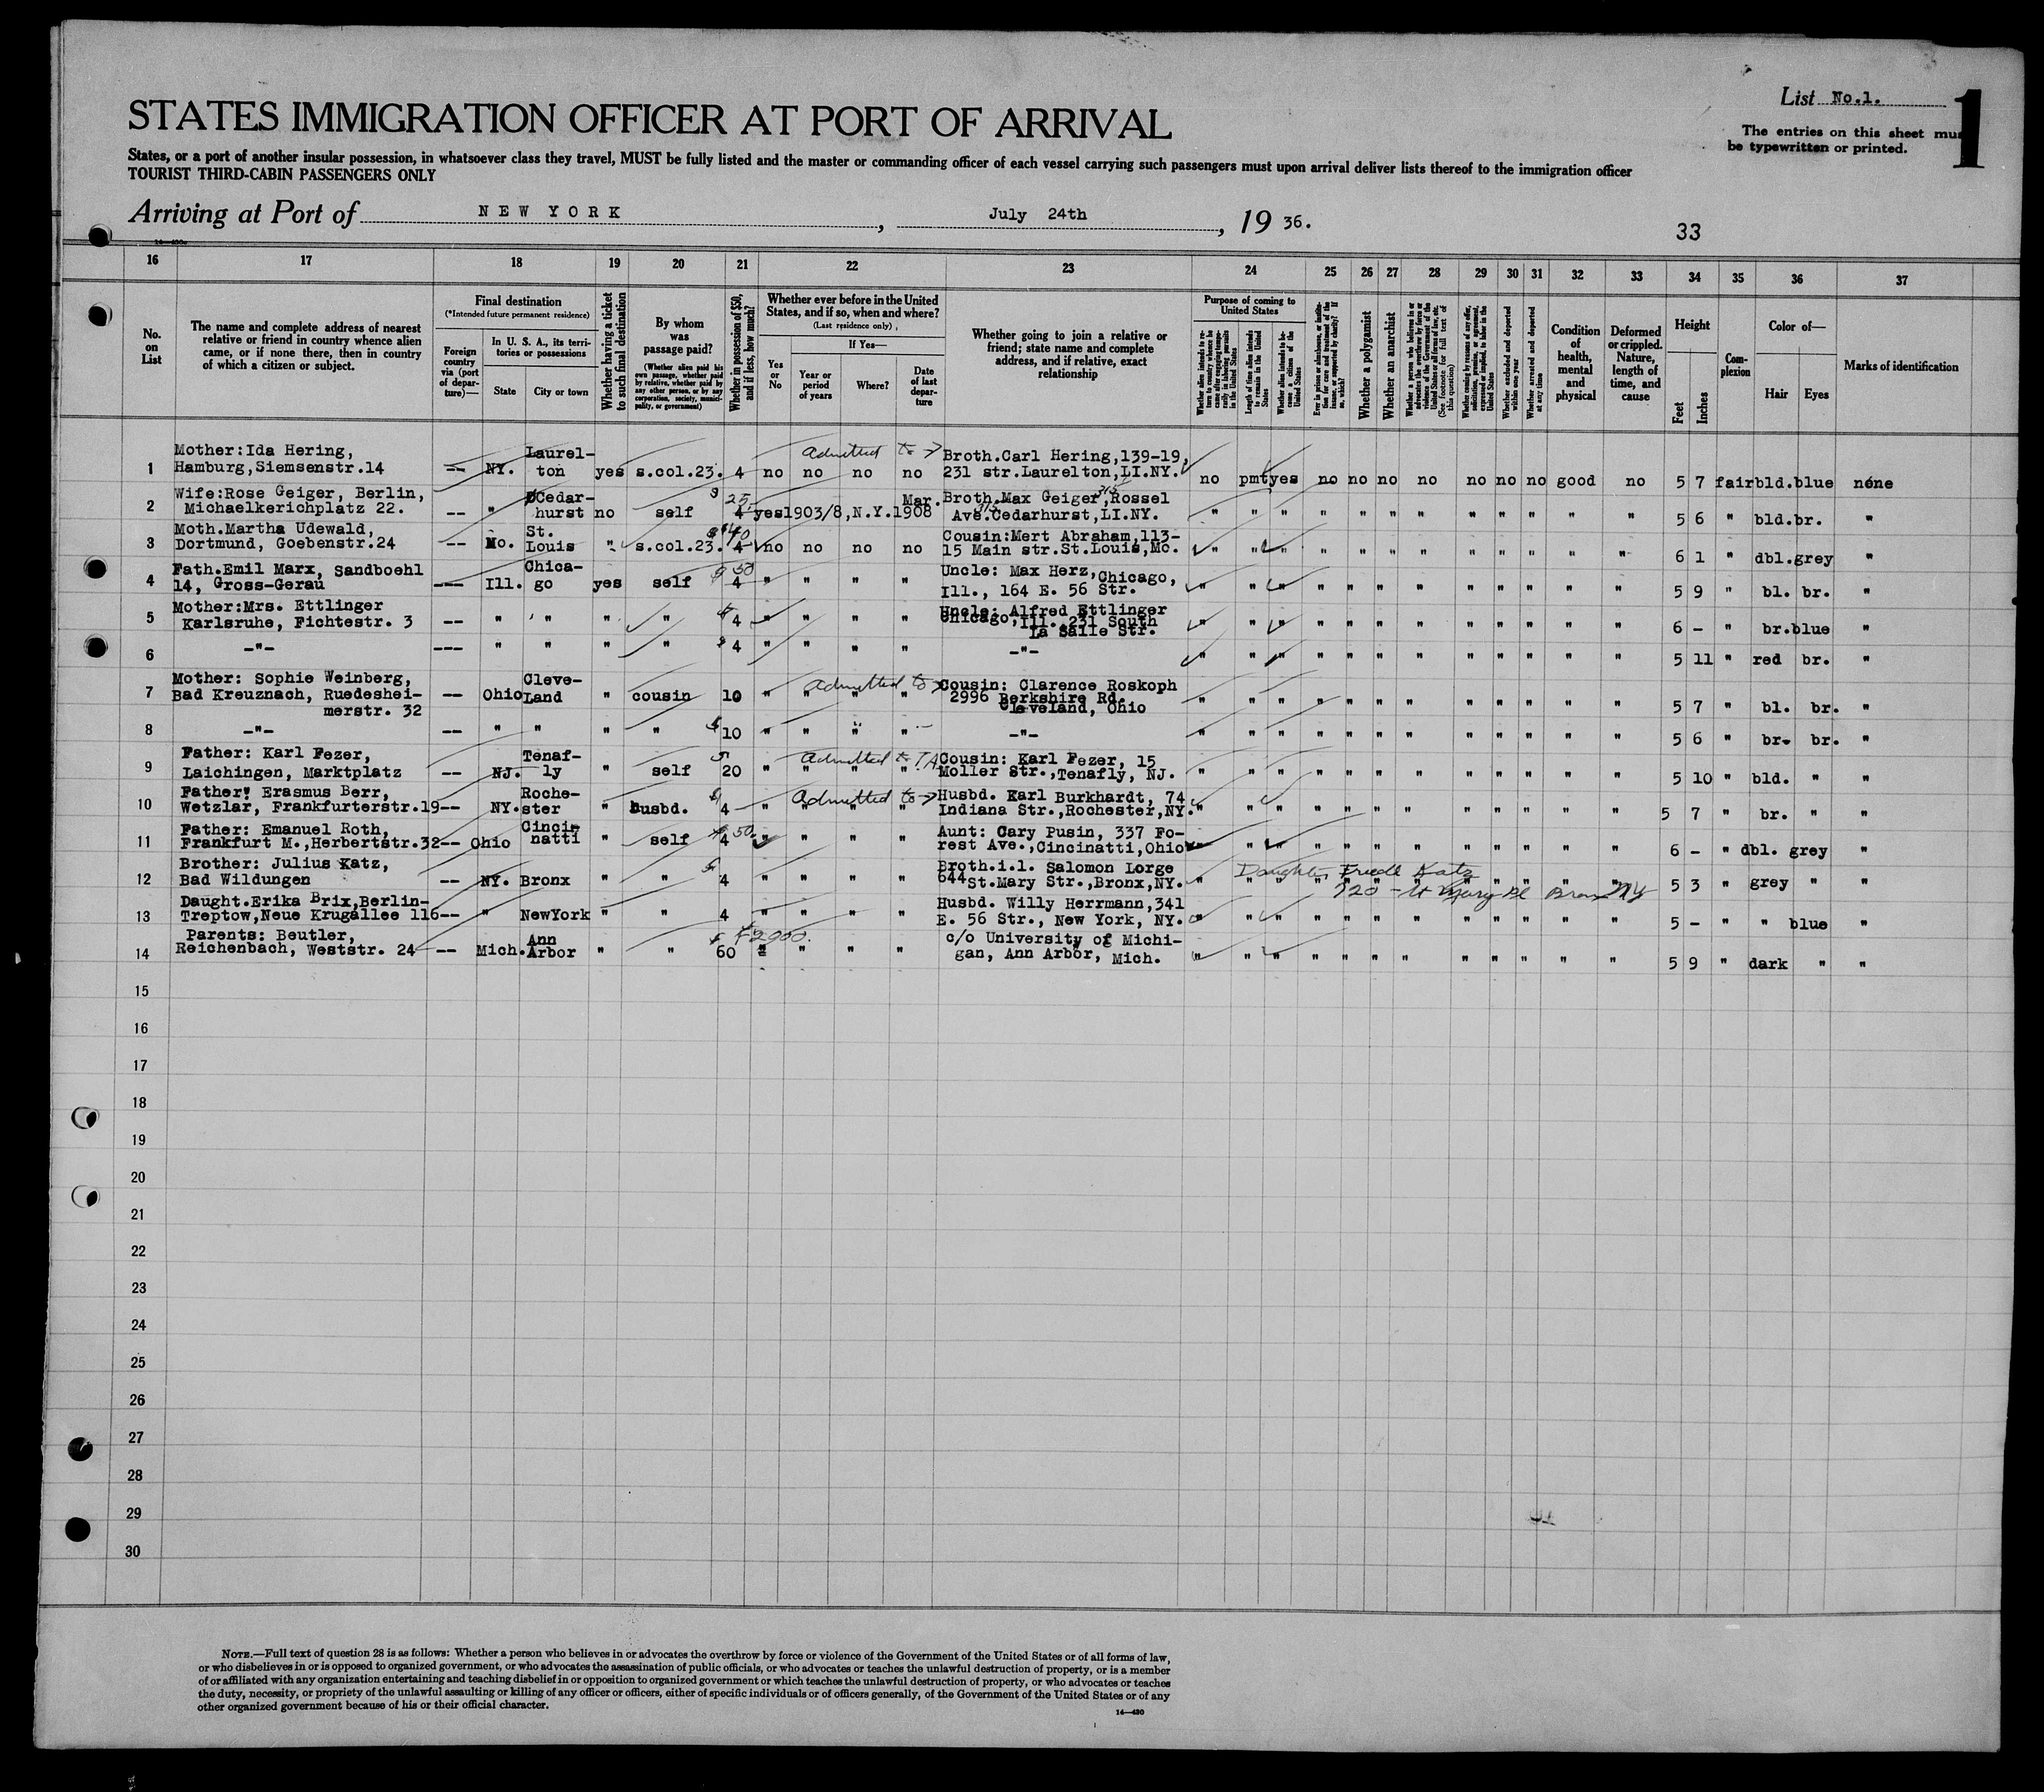 STATES IMMIGRATION OFFICER AT PORT OF ARRIVAL
List No.1.
1
The entries on this sheet mus
be typewritten or printed.
States, or a port of another insular possession, in whatsoever class they travel, MUST be fully listed and the master or commanding officer of each vessel carrying such passengers must upon arrival deliver lists thereof to the immigration officer
TOURIST THIRD-CABIN PASSENGERS ONLY
Arriving at Port of NEW YORK, July 24th, 19 36.
33
16 17 18 19 20 21 22 23 24 25 26 27 28 29 30 31 32 33 34 35 36 37
No. on List
The name and complete address of nearest relative or friend in country whence alien came, or if none there, then in country of which a citizen or subject.
Final destination
(*Intended future permanent residence)
Foreign country via (port of departure)—
In U. S. A., its territories or possessions
State
City or town
Whether having a ticket to such final destination
By whom was passage paid?
(Whether alien paid his own passage, whether paid by relative, whether paid by any other person, or by any corporation, society, municipality, or government)
Whether in possession of $50, and if less, how much?
Whether ever before in the United States, and if so, when and where?
(Last residence only)
Yes or No
If Yes—
Year or period of years
Where?
Date of last departure
Whether going to join a relative or friend; state name and complete address, and if relative, exact relationship
Purpose of coming to United States
Whether a polygamist
Whether an anarchist
Whether excluded and deported within one year
Whether arrested and deported at any time
Condition of health, mental and physical
Deformed or crippled. Nature, length of time, and cause
Height
Feet
Inches
Complexion
Color of—
Hair
Eyes
Marks of identification
1 Mother:Ida Hering, Hamburg,Siemsenstr.14 -- NY. Laurelton yes s.col.23. 4 no no no no Admitted to Broth.Carl Hering,139-19, 231 str.Laurelton,LI.NY. no pmt yes no no no no no no no good no 5 7 fair bld. blue none
2 Wife:Rose Geiger, Berlin, Michaelkerichplatz 22. -- " Cedarhurst no self 25 4 yes 1903/8,N.Y. Mar. 1908 Broth.Max Geiger, 315 Rossel Ave.Cedarhurst,LI.NY. " " " " " " " " " " " " 5 6 " bld. br. "
3 Moth.Martha Udewald, Dortmund, Goebenstr.24 -- Mo. St. Louis " s.col.23. 40 4 no no no no Cousin:Mert Abraham,113-15 Main str.St.Louis,Mo. " " " " " " " " " " " " 6 1 " dbl. grey "
4 Fath.Emil Marx, Sandboehl 14, Gross-Gerau --- Ill. Chicago yes self 50 4 " " " " Uncle: Max Herz,Chicago, Ill., 164 E. 56 Str. " " " " " " " " " " " " 5 9 " bl. br. "
5 Mother:Mrs. Ettlinger Karlsruhe, Fichtestr. 3 -- " " " " 4 " " " " Uncle: Alfred Ettlinger Chicago,Ill. 231 South La Salle Str. " " " " " " " " " " " " 6 - " br. blue "
6 -"- --- " " " " 4 " " " " -"- " " " " " " " " " " " " 5 11 " red br. "
7 Mother: Sophie Weinberg, Bad Kreuznach, Ruedesheimerstr. 32 -- Ohio Cleveland " cousin 10 " " " " Admitted to Cousin: Clarence Roskoph 2996 Berkshire Rd. Cleveland, Ohio " " " " " " " " " " " " 5 7 " bl. br. "
8 -"- -- " " " " 10 " " " " -"- " " " " " " " " " " " " 5 6 " br. br. "
9 Father: Karl Fezer, Laichingen, Marktplatz -- NJ. Tenafly " self 20 " " " " Admitted to Cousin: Karl Fezer, 15 Moller Str.,Tenafly, NJ. " " " " " " " " " " " " 5 10 " bld. " "
10 Father: Erasmus Berr, Wetzlar, Frankfurterstr.19 -- NY. Rochester " husbd. 4 " " " " Admitted to Husbd. Karl Burkhardt, 74 Indiana Str.,Rochester,NY. " " " " " " " " " " " " 5 7 " br. " "
11 Father: Emanuel Roth, Frankfurt M.,Herbertstr.32 -- Ohio Cincinnatti " self 50 4 " " " " Aunt: Cary Pusin, 337 Forest Ave.,Cincinatti,Ohio " " " " " " " " " " " " 6 - " dbl. grey "
12 Brother: Julius Katz, Bad Wildungen -- NY. Bronx " " 4 " " " " Broth.i.l. Salomon Lorge 644 St.Mary Str.,Bronx,NY. Daughter Friedl Katz 520 - St Mary Pl Bronx NY " " " " " " " " " " " " 5 3 " grey " "
13 Daught.Erika Brix,Berlin-Treptow,Neue Krugallee 116 -- " NewYork " " 4 " " " " Husbd. Willy Herrmann,341 E. 56 Str., New York, NY. " " " " " " " " " " " " 5 - " " blue "
14 Parents: Beutler, Reichenbach, Weststr. 24 -- Mich. Ann Arbor " " 60 $2900. " " " " c/o University of Michigan, Ann Arbor, Mich. " " " " " " " " " " " " 5 9 " dark " "
15
16
17
18
19
20
21
22
23
24
25
26
27
28
29
30
NOTE.—Full text of question 28 is as follows: Whether a person who believes in or advocates the overthrow by force or violence of the Government of the United States or of all forms of law,
or who disbelieves in or is opposed to organized government, or who advocates the assassination of public officials, or who advocates or teaches the unlawful destruction of property, or is a member
of or affiliated with any organization entertaining and teaching disbelief in or opposition to organized government or which teaches the unlawful destruction of property, or who advocates or teaches
the duty, necessity, or propriety of the unlawful assaulting or killing of any officer or officers, either of specific individuals or of officers generally, of the Government of the United States or of any
other organized government because of his or their official character.
14—430